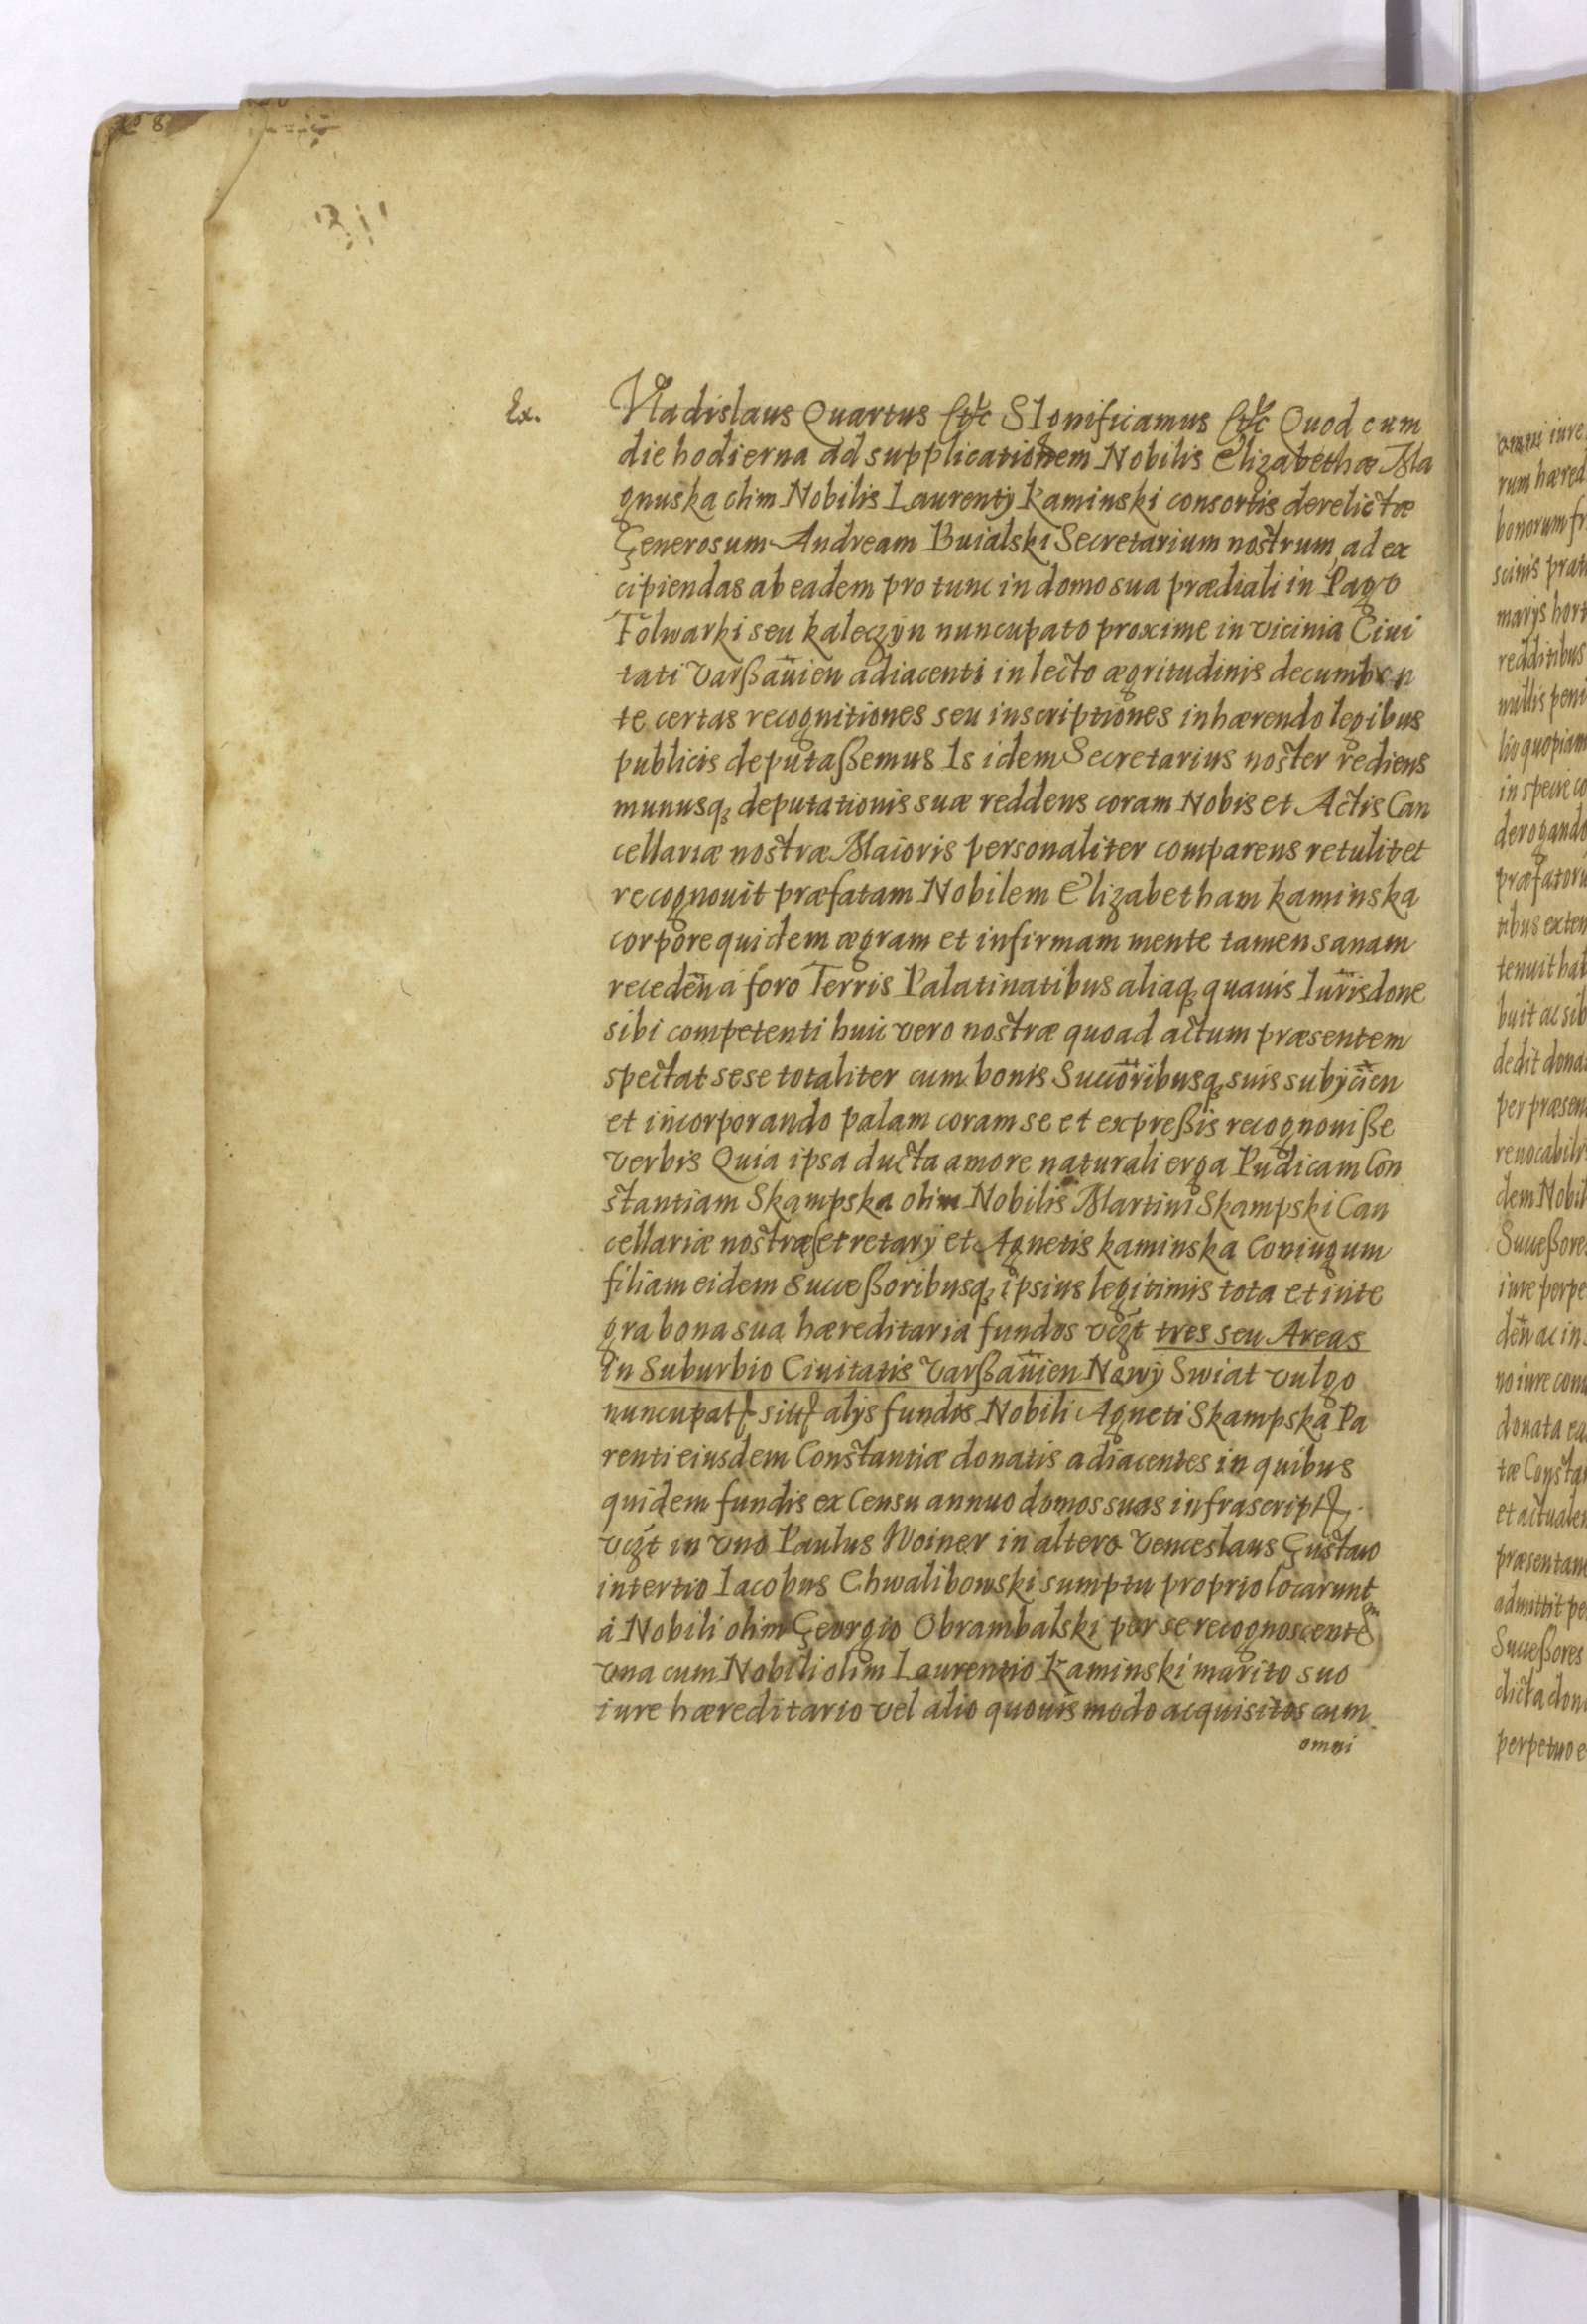 Ex.
Vladislaus Quartus etc SIgnificamus etc Quod cum
die hodierna ad supplicationem Nobilis Elizabethæ Ma
gnuska olim Nobilis Laurentij Kaminski consortis derelictæ
Generosum Andream Buialski Secretarium nostrum ad ex
cipiendas ab eadem pro tunc in domo sua prædiali in Pago
Folwarki seu Kaleczyn nuncupato proxime in vicinia Ciui
tati Varßauien adiacenti in lecto ægritudinis decumben
te certas recognitiones seu inscriptiones inhærendo legibus
publicis deputaßemus Is idem Secretarius noster rediens
munusq; deputationis suæ reddens coram Nobis et Actis Can
cellariæ nostræ Maioris personaliter comparens retulit et
recognouit præfatam Nobilem Elizabetham Kaminska
corpore quidem ægram et infirmam mente tamen sanam
receden̄ a foro Terris Palatinatibus aliaq; quauis Iurisdone
sibi competenti huic vero nostræ quoad actum præsentem
spectat sese totaliter cum bonis Succoribusq; suis subijcien
et incorporando palam coram se et expreßis recognouiße
verbis Quia ipsa ducta amore naturali erga Pudicam Con
stantiam Skampska olim Nobilis Martini Skampski Can
cellariæ nostræ Secretarij et Agnetis Kaminska Coniugum
filiam eidem Succeßoribusq; ipsius legitimis tota et inte
gra bona sua hæreditaria fundos vczt tres seu Areas
in Suburbio Ciuitatis Varßauien Nowy Swiat vulgo
nuncupat sit alijs fundis Nobili Agneti Skampska Pa
renti eiusdem Constantiæ donatis adiacentes in quibus
quidem fundis ex Censu annuo domos suas infrascript
vczt in vno Paulus Woiner in altero Venceslaus Gustaw
in tertio Iacobus Chwalibowski sumptu proprio locarunt
à Nobili olim Georgio Obrambalski per se recognoscente
vna cum Nobili olim Laurentio Kaminski marito suo
iure hæreditario vel alio quouis modo acquisitos cum
omni